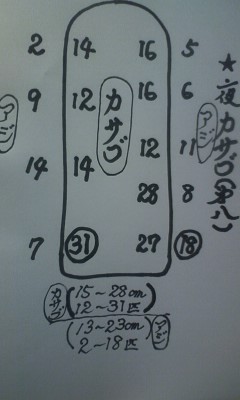 ★夜カサゴ(第八)
2 14 16 5
9 12 16 6
アジ カサゴ アジ
14 14 12 11
28 8
7 31 27 18
カサゴ (15~28cm
12~31匹)
(13~23cm
2~18匹) アジ